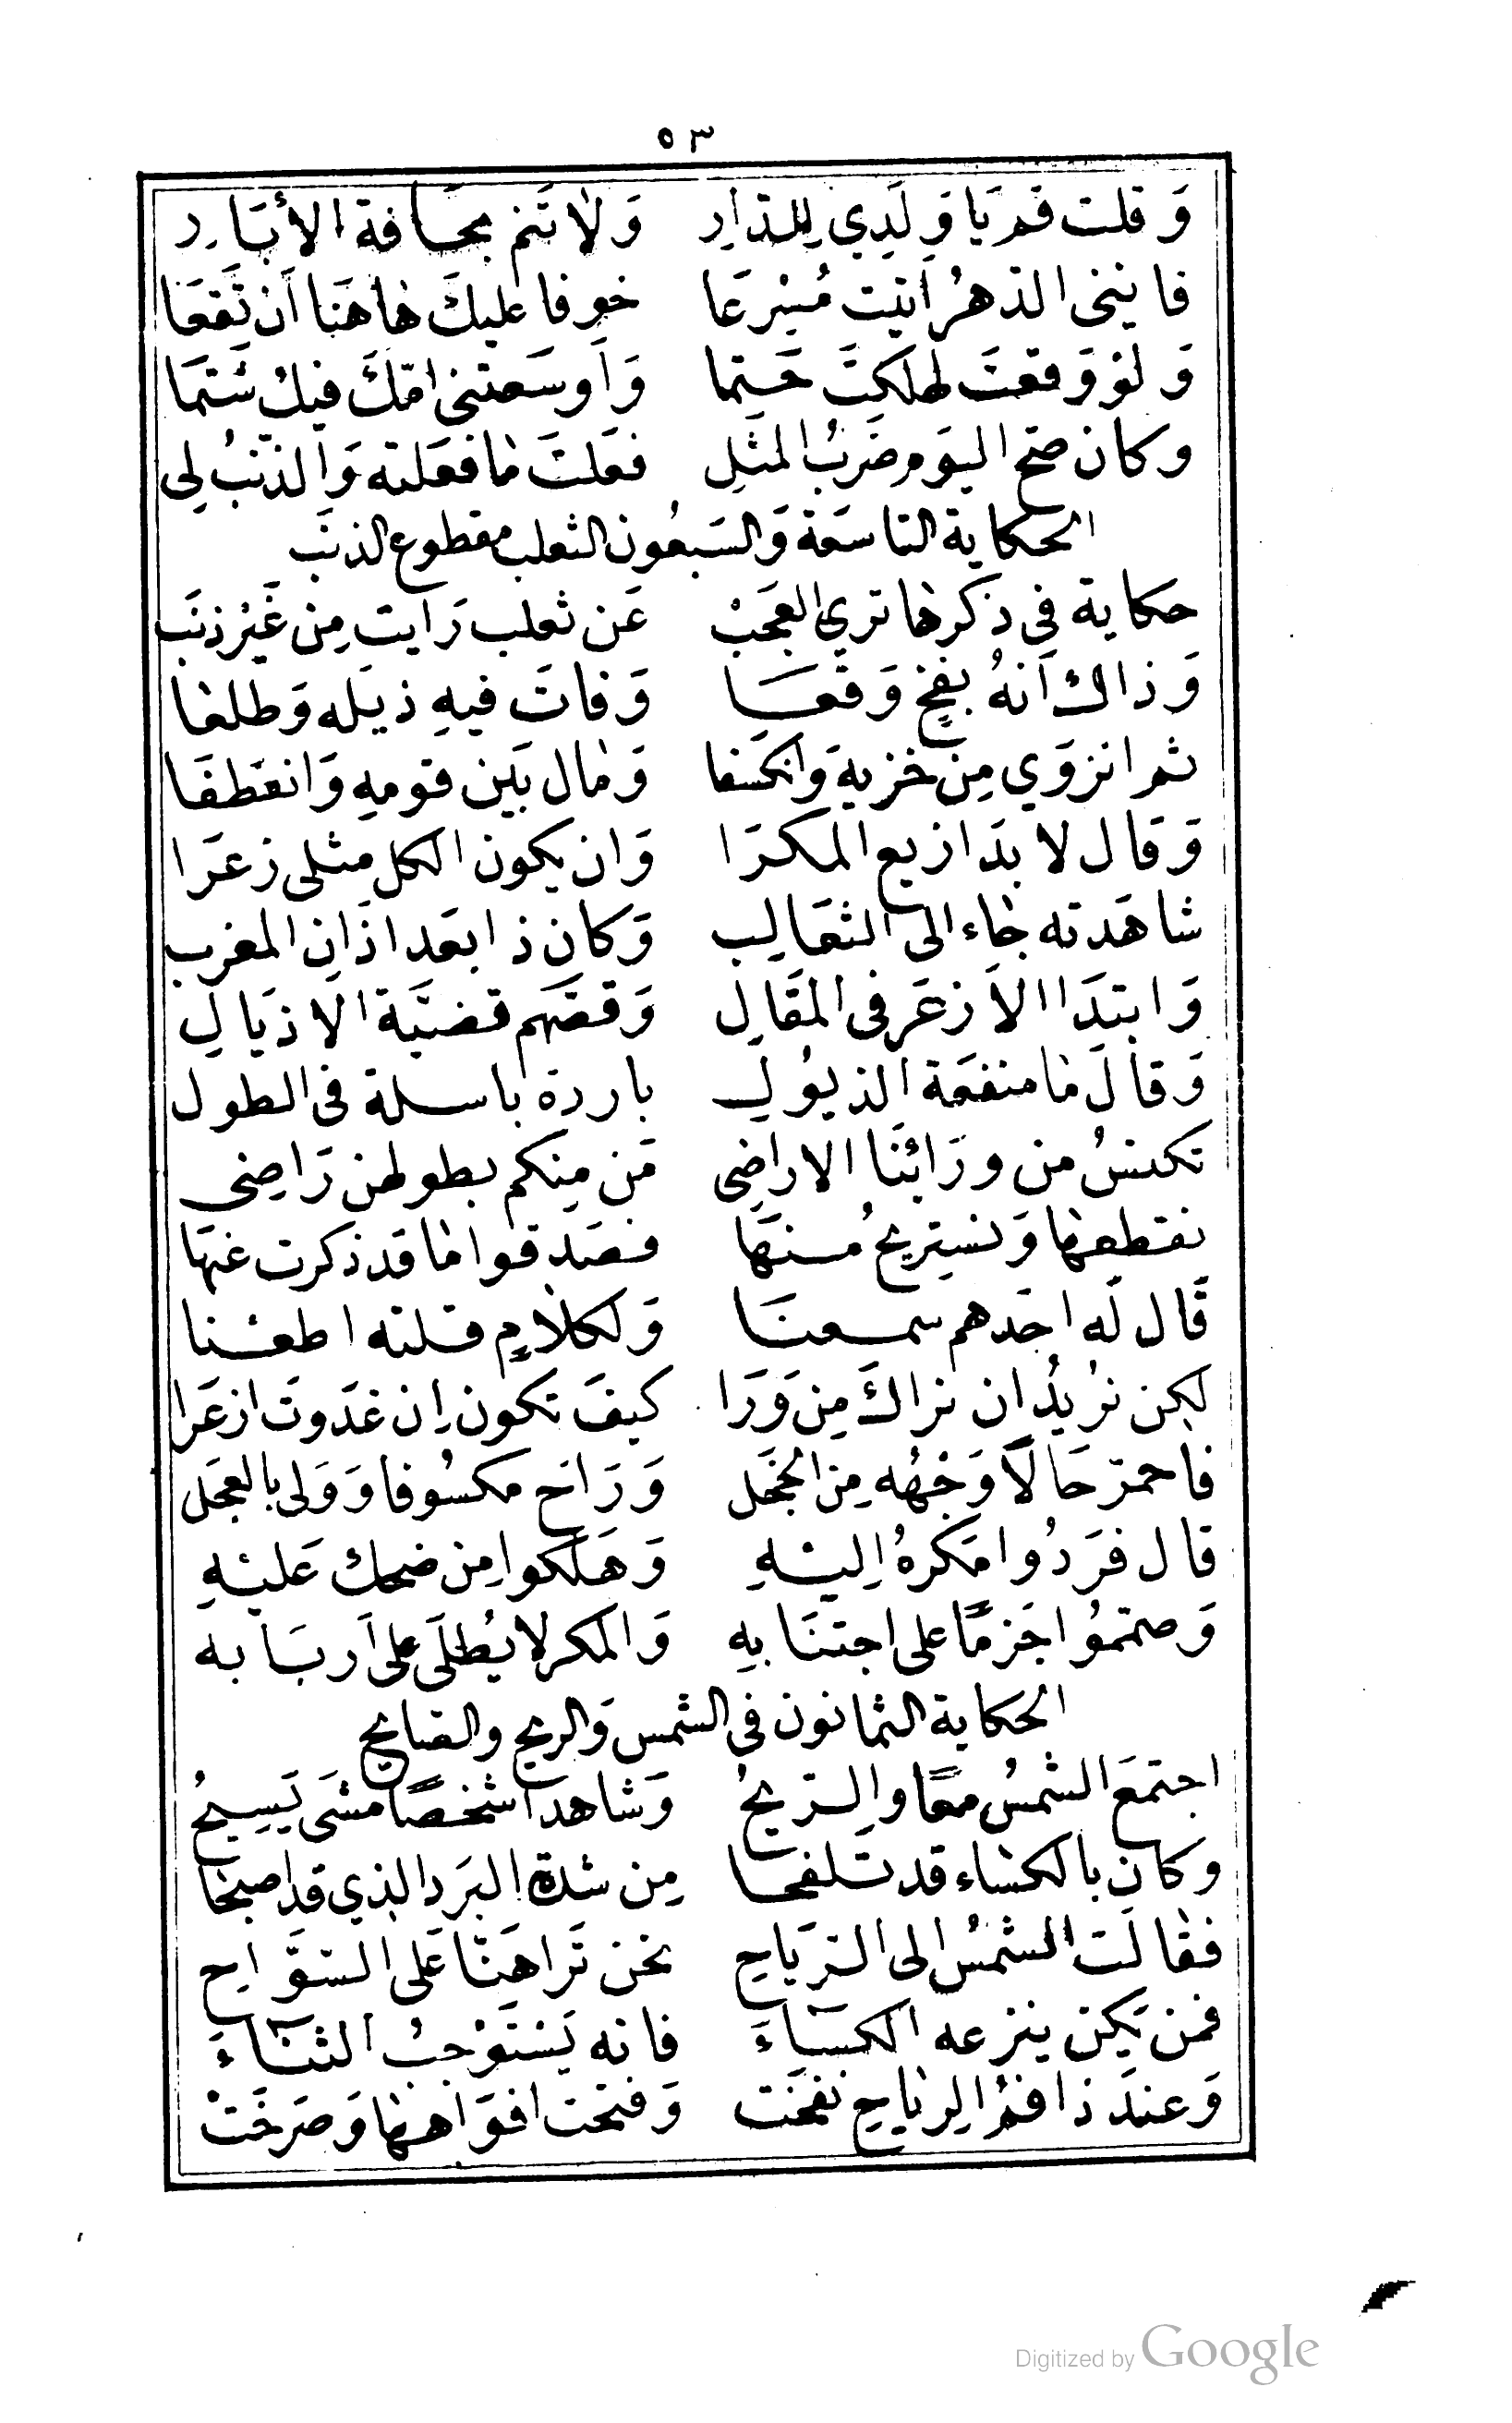 ٥٣
وَقلت قم يَا وَلَدِي لِلدَارِ وَلاٰ تَنم بحَافة الأبَارِ
فاننى الذهرُ اتيت مُسْرعَا خوفا عليكَ هٰاهنَا اَن تقعَا
وَلَوْ وَقعتَ لهلكتَ حَتما وَاَوسَعتنى امّكَ فيكْ شتمَا
وكان صَح اليَوم ضَربُ المثَلِ فعَلتَ مٰا فعَلته وَالذنبُ لِى
الحكاية التاسَعَة وَالسَبعُون الثعلب مقطوع الذنَب
حكاية فى ذكرهٰا تري العَجَبْ عَن ثعلب رَايت مِن غَيْر ذنَب
وَذاك اَنهُ بفخٍ وَقعَا وَفاتَ فيهِ ذيَله وَطلعٰا
ثم انزوَي مِن خزيهِ وَانكَسفا وَمٰال بَين قومهِ وَانعَطفَا
وَقال لا بدَ ازيع المكرَا وَان يكون الكل مثلى زعَرَا
شاهَدته جٰاء الى الثعَالِب وَكان ذا بعَد اذَان المغرب
وَابتدَا الاَزعَر فى المقَالِ وَقصّهَم قضيّة الاذيَالِ
وَقالَ مٰا منفعَة الذيوُلِ باردة باسلة فى الطول
تكنسُ من ورَائنَا الاراضِى مَن مِنكم بطولهن رَاضِى
نقطعهٰا وَنستريحُ مُنهَا فصَدقوا مٰا قد ذكرت عَنهَا
قَال لَه احَدهم سمعنَا وَلكلاٰمٍ قلته اطعْنا
لكِن نرُيدُ ان نراكَ مِن وَرَا كيفَ تكون اِن غدَوتَ ازعَرَا
فاحمرّ حَالاً وَجْهُه مِن الخَجَل وَرَاحَ مكسُوفا وَوَلى بالعجَل
قال فرَدُوا مَكرهُ اِليْهِ وَهَلكوا مِن ضحك عَليْهِ
وَصمّمُوا جَزمًا على اجتنَابهِ وَالمكر لا يُطلَى على اَربَابه
الحكاية الثمانون فى الشمس وَالريح والصايح
اجتمَعَ الشمسُ معًا وَالرّيحُ وَشاهدا شخصًا مشَى يَسيحُ
وكان بالكسٰاء قد تَلفحَا مِن شدة البَرَد الذي قد اصبحٰا
فقٰالَت الشمسُ الى الرّيَاحِ نحن ترَاهنَّا عَلى السّوَّاحِ
فمن يَكن ينزعه الكسَاءَ فانه يَستَوْجبُ الثنَاءَ
وَعندَ ذا فمُ الِريٰاحِ نفخَت وَفتحَت افوَاههٰا وَصَرخَتْ
Digitized by Google